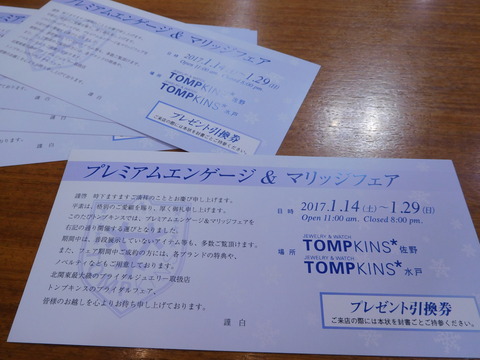 プレミアムエンゲージ & マリッジフェア
2017.1.14(土)〜1.29(日)
Open 11:00 am. Closed 8:00 pm.
場所
TOMPKINS* 佐野
TOMPKINS* 水戸
プレゼント引換券
ご来店の際には本状を封書ごとご持参ください。
謹白
プレミアムエンゲージ & マリッジフェア
謹啓 時下ますますご清祥のこととお慶び申し上げます。
平素は、格別のご愛顧を賜り、厚く御礼申し上げます。
このたびトンプキンスでは、プレミアムエンゲージ&マリッジフェアを
右記の通り開催する運びとなりました。
期間中は、普段展示していないアイテム等も、多数ご覧頂けます。
また、フェア期間中ご成約の方には、各ブランドの特典や、
ノベルティなどもご用意しております。
北関東最大級のブライダルジュエリー取扱店
トンプキンスのブライダルフェア。
皆様のお越しを心よりお待ち申し上げております。
謹白
日時 2017.1.14(土)〜1.29(日)
Open 11:00 am. Closed 8:00 pm.
場所
JEWELRY & WATCH
TOMPKINS* 佐野
JEWELRY & WATCH
TOMPKINS* 水戸
プレゼント引換券
ご来店の際には本状を封書ごとご持参ください。